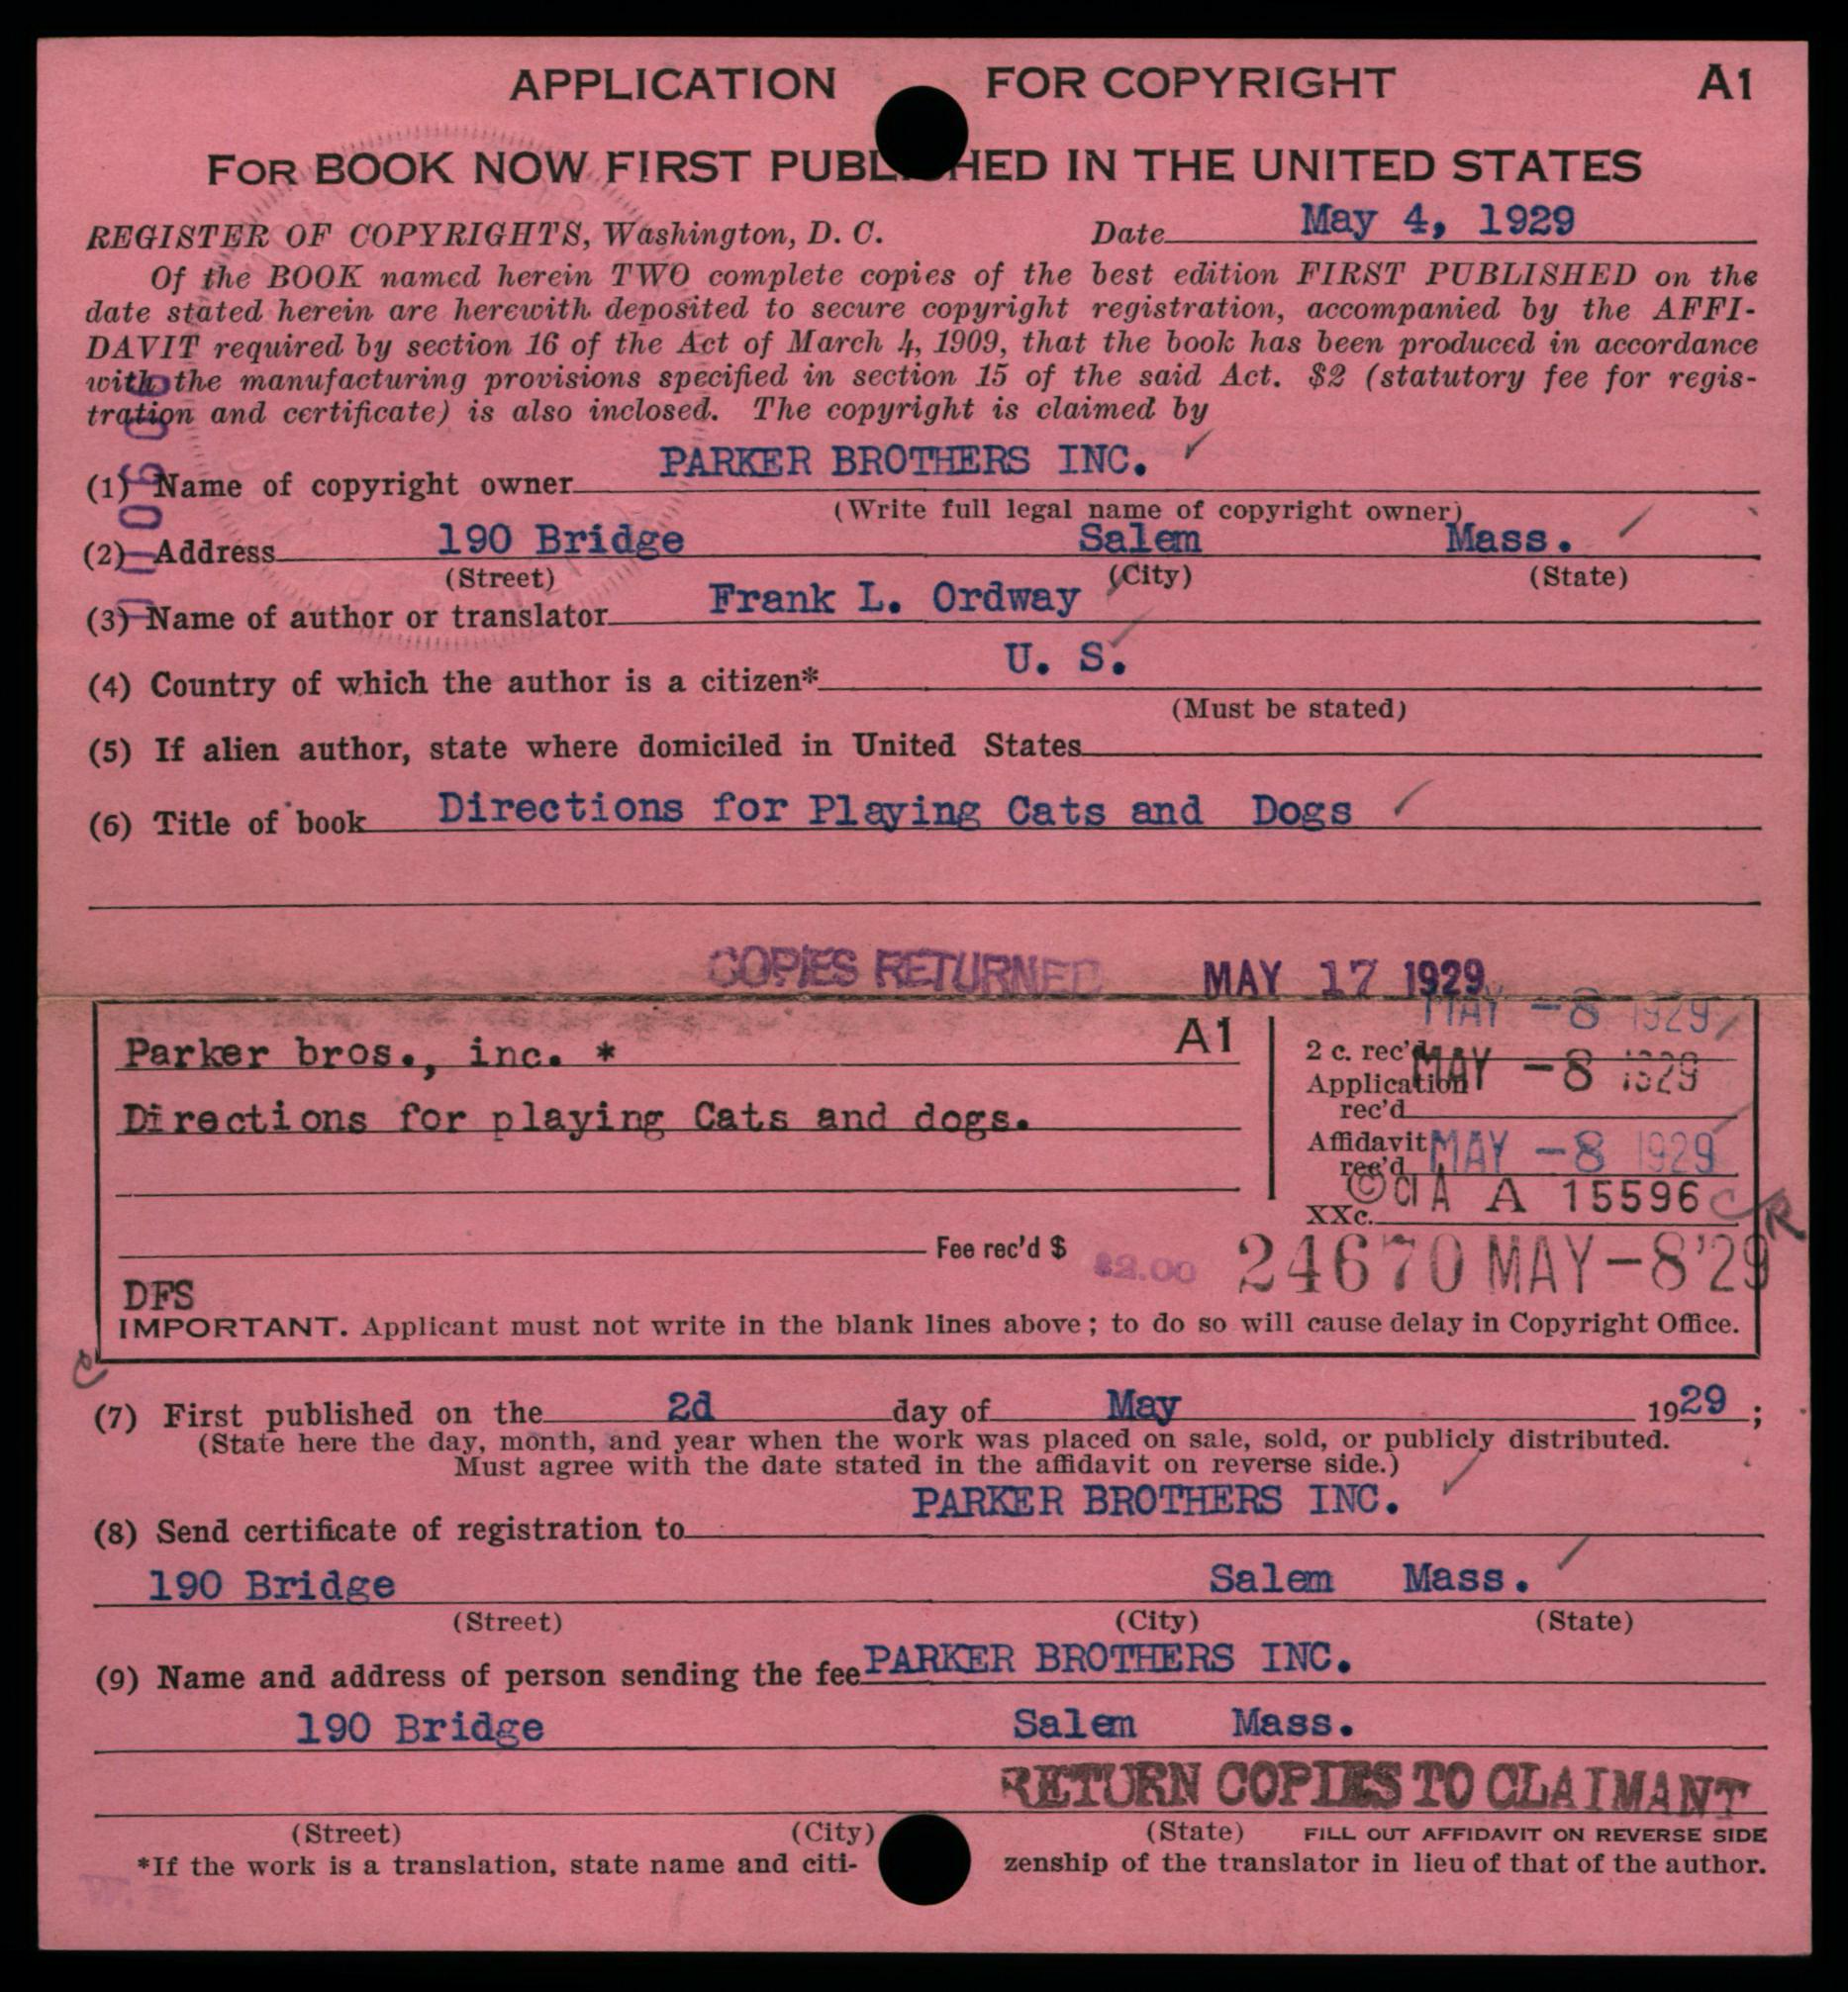 APPLICATION FOR COPYRIGHT A1
FOR BOOK NOW FIRST PUBL HED IN THE UNITED STATES
REGISTER OF COPYRIGHTS, Washington, D. C. Date May 4, 1929
Of the BOOK named herein TWO complete copies of the best edition FIRST PUBLISHED on the
date stated herein are herewith deposited to secure copyright registration, accompanied by the AFFI-
DAVIT required by section 16 of the Act of March 4, 1909, that the book has been produced in accordance
with the manufacturing provisions specified in section 15 of the said Act. $2 (statutory fee for regis-
tration and certificate) is also inclosed. The copyright is claimed by
(1) Name of copyright owner PARKER BROTHERS INC.
(Write full legal name of copyright owner)
(2) Address 190 Bridge Salem Mass.
(Street) (City) (State)
(3) Name of author or translator Frank L. Ordway
(4) Country of which the author is a citizen* U. S.
(Must be stated)
(5) If alien author, state where domiciled in United States
(6) Title of book Directions for Playing Cats and Dogs
COPIES RETURNED MAY 17 1929
MAY -8 1929
Parker bros., inc. * A1 2 c. rec'd
Application MAY -8 1929
rec'd
Directions for playing Cats and dogs.
Affidavit MAY -8 1929
rec'd
© Cl A A 15596
XXc.
Fee rec'd $ $2.00 24670 MAY-8'29
DFS
IMPORTANT. Applicant must not write in the blank lines above; to do so will cause delay in Copyright Office.
(7) First published on the 2d day of May 1929;
(State here the day, month, and year when the work was placed on sale, sold, or publicly distributed.
Must agree with the date stated in the affidavit on reverse side.)
(8) Send certificate of registration to PARKER BROTHERS INC.
190 Bridge Salem Mass.
(Street) (City) (State)
(9) Name and address of person sending the fee PARKER BROTHERS INC.
190 Bridge Salem Mass.
RETURN COPIES TO CLAIMANT
(Street) (City) (State) FILL OUT AFFIDAVIT ON REVERSE SIDE
*If the work is a translation, state name and citi- zenship of the translator in lieu of that of the author.